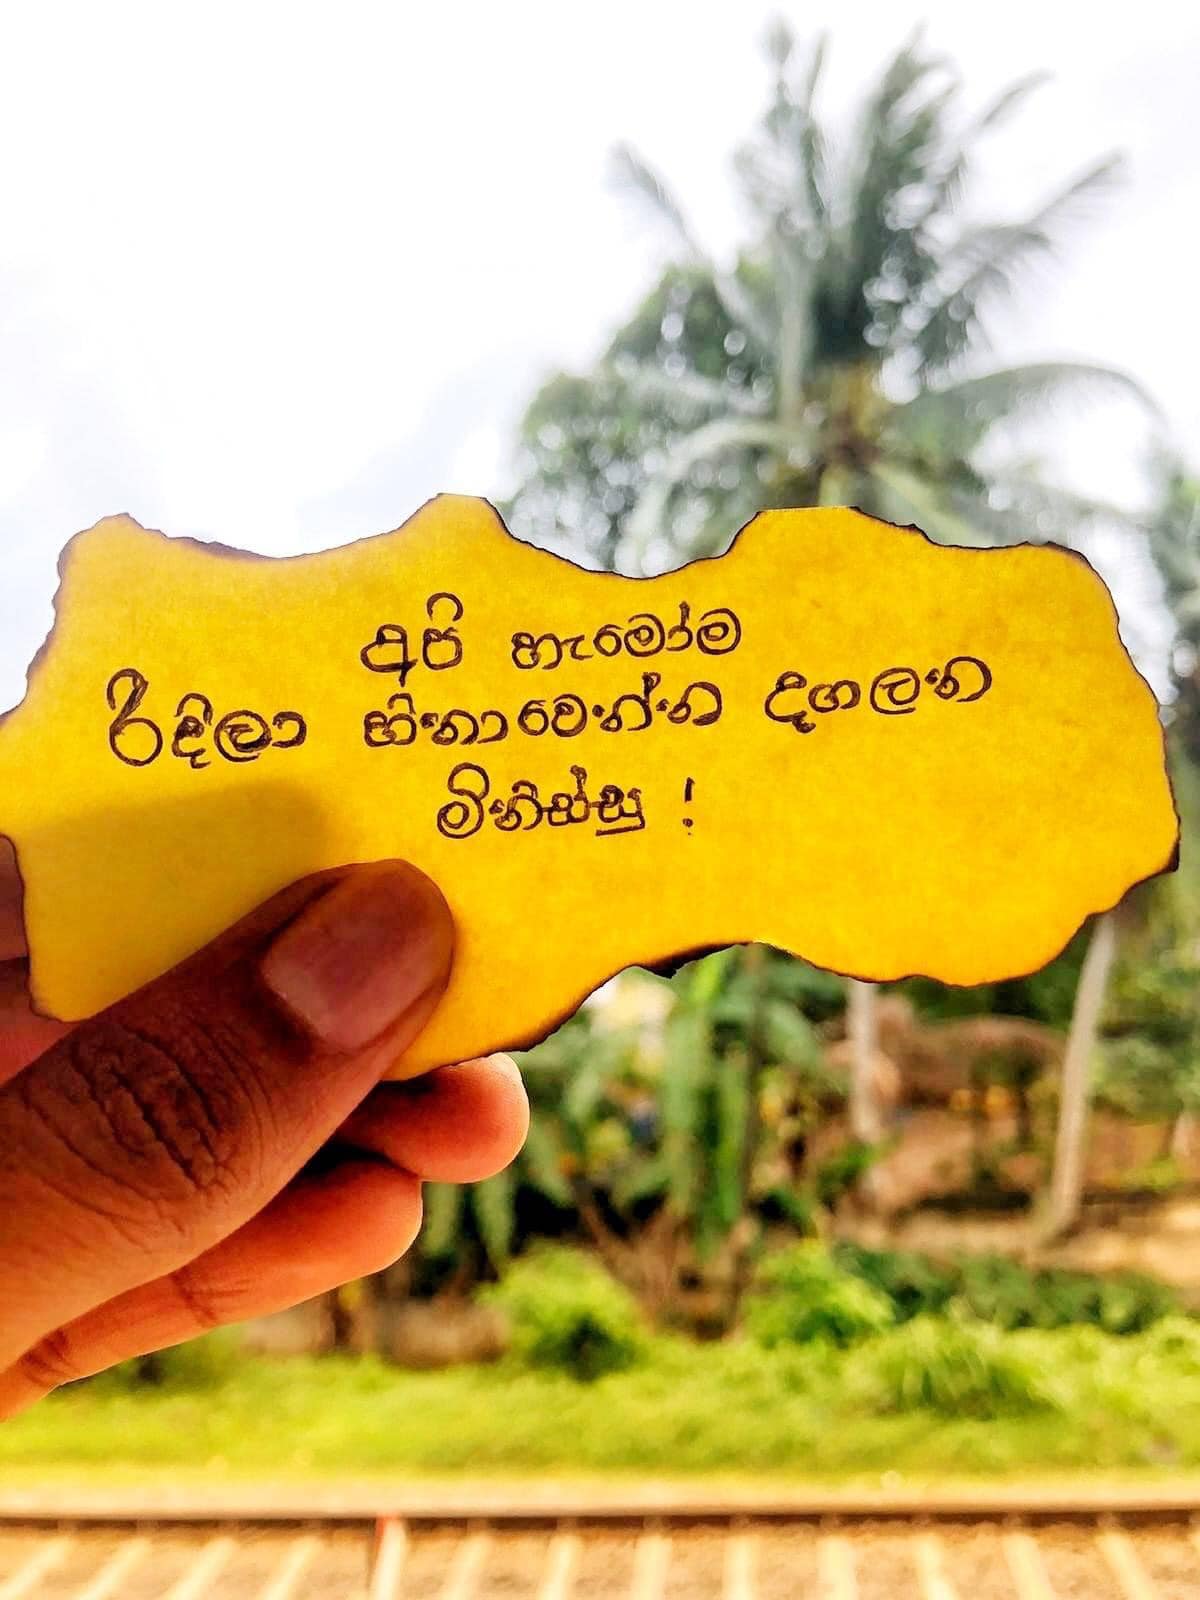 අපි හැමෝම
රිදිලා හිනාවෙන්න දඟලන
මිනිස්සු !